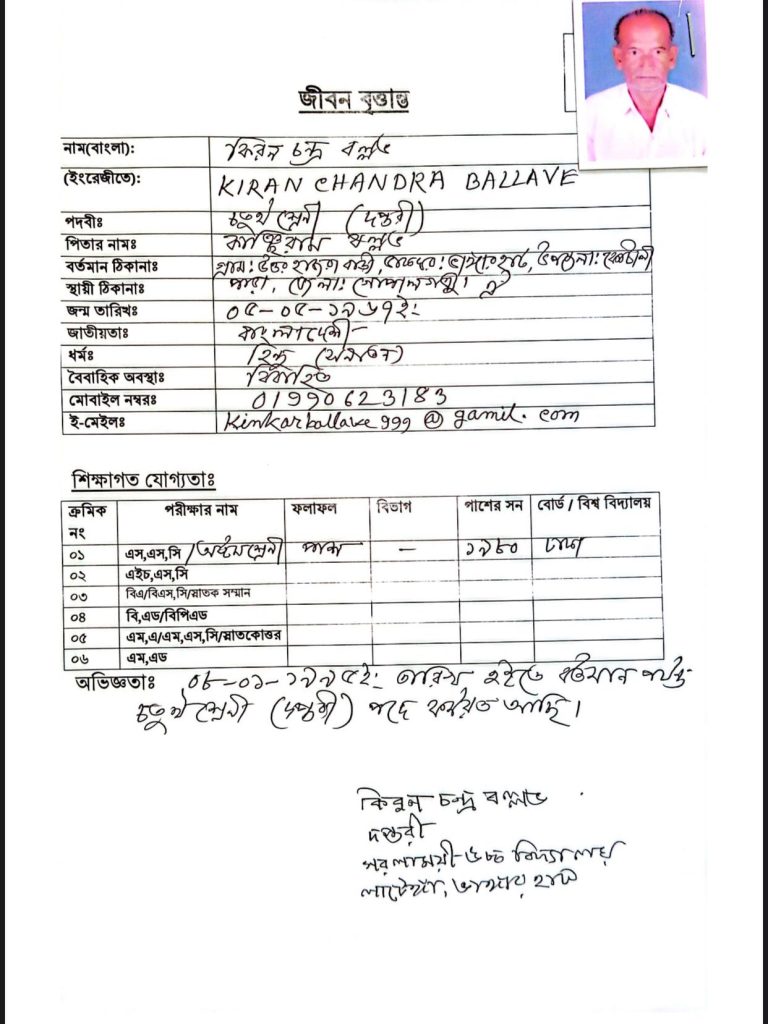 জীবন বৃত্তান্ত
নাম(বাংলা): কিরন চন্দ্র বল্লভ
(ইংরেজীতে): KIRAN CHANDRA BALLAVE
পদবীঃ চতুর্থ শ্রেনী (দপ্তরী)
পিতার নামঃ বল্লভ
বর্তমান ঠিকানাঃ গ্রাম: উত্তর হাজরা বাড়ী, ভাঙ্গারহাট, উপজেলা: কোটালী
স্থায়ী ঠিকানাঃ পাড়া, জেলা: গোপালগঞ্জ।
জন্ম তারিখঃ ০৫-০৫-১৯৬৭ইং
জাতীয়তাঃ বাংলাদেশী
ধর্মঃ হিন্দু (সনাতন)
বৈবাহিক অবস্থাঃ বিবাহিত
মোবাইল নম্বরঃ 01990623183
ই-মেইলঃ kinkarballave999@gamil.com
শিক্ষাগত যোগ্যতাঃ
ক্রমিক নং পরীক্ষার নাম ফলাফল বিভাগ পাশের সন বোর্ড / বিশ্ব বিদ্যালয়
০১ এস,এস,সি /অষ্টম শ্রেনী পাশ - ১৯৮০ ঢাকা
০২ এইচ,এস,সি
০৩ বিএ/বিএস,সি/স্নাতক সম্মান
০৪ বি,এড/বিপিএড
০৫ এম,এ/এম,এস,সি/স্নাতকোত্তর
০৬ এম,এড
অভিজ্ঞতাঃ ০৮-০১-১৯৯৫ইং তারিখ হইতে বর্তমান পর্যন্ত
চতুর্থ শ্রেনী (দপ্তরী) পদে কর্মরত আছি।
কিরন চন্দ্র বল্লভ
দপ্তরী
সরলাময়ী উচ্চ বিদ্যালয়
লাটেঙ্গা, ভাঙ্গার হাট